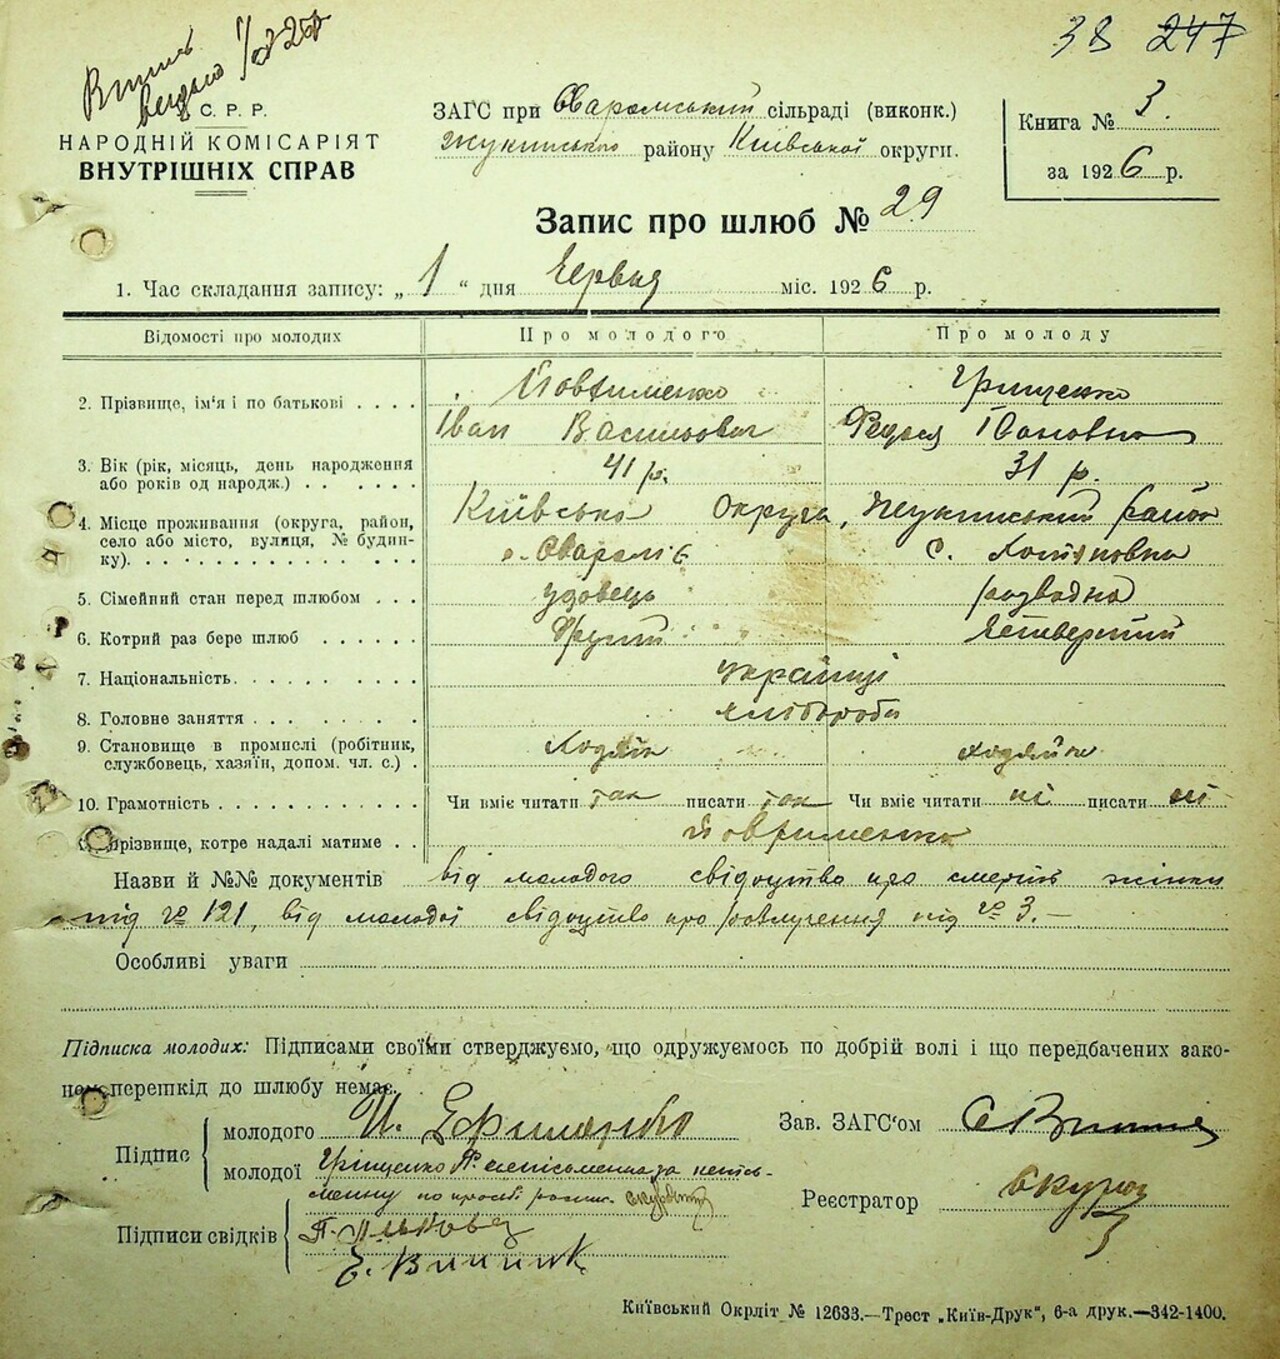 38 247
Витяг
видано
С. Р. Р.
НАРОДНІЙ КОМІСАРІЯТ
ВНУТРІШНІХ СПРАВ
ЗАГС при Сваромський сільраді (виконк.)
Жукинського району Київської округи.
Книга № 3.
за 1926 р.
Запис про шлюб № 29
1. Час складання запису: „ 1 “ дня Червня міс. 1926 р.
Відомості про молодих Про молодого Про молоду
2. Прізвище, ім'я і по батькові . . . . Йовфименко Грищенко
Іван Васильович Федося Івановна
3. Вік (рік, місяць, день народження або років од народж.) . . . . . . 41 р. 31 р.
4. Місце проживання (округа, район, село або місто, вулиця, № будинку). Київська Округа, Жукинський район
с. Сваромͥє с. Хотяновка
5. Сімейний стан перед шлюбом . . . удовець розводна
6. Котрий раз бере шлюб . . . . . . Другий Четвертий
7. Національність. українці
8. Головне заняття хлібороби
9. Становище в промислі (робітник, службовець, хазяїн, допом. чл. с.) . Хазяїн хазяйка
10. Грамотність Чи вміє читати так писати так Чи вміє читати ні писати ні
Прізвище, котре надалі матиме . . Йовфименко
Назви й №№ документів від молодого свідоцтво про смерть жінки
під № 121, від молодої свідоцтво про розлучення під № 3. —
Особливі уваги
Підписка молодих: Підписами своїми стверджуємо, що одружуємось по добрій волі і що передбачених законом перешкід до шлюбу немає.
Підпис
молодого И. Ефименко
молодої Гріщенко Ф. неписьменна за непись-
менну по просбі розпис.
Зав. ЗАГС'ом
Реєстратор
Підписи свідків
Е. Винник
Київський Окрліт № 12633.—Трест „Київ-Друк“, 6-а друк.—342-1400.